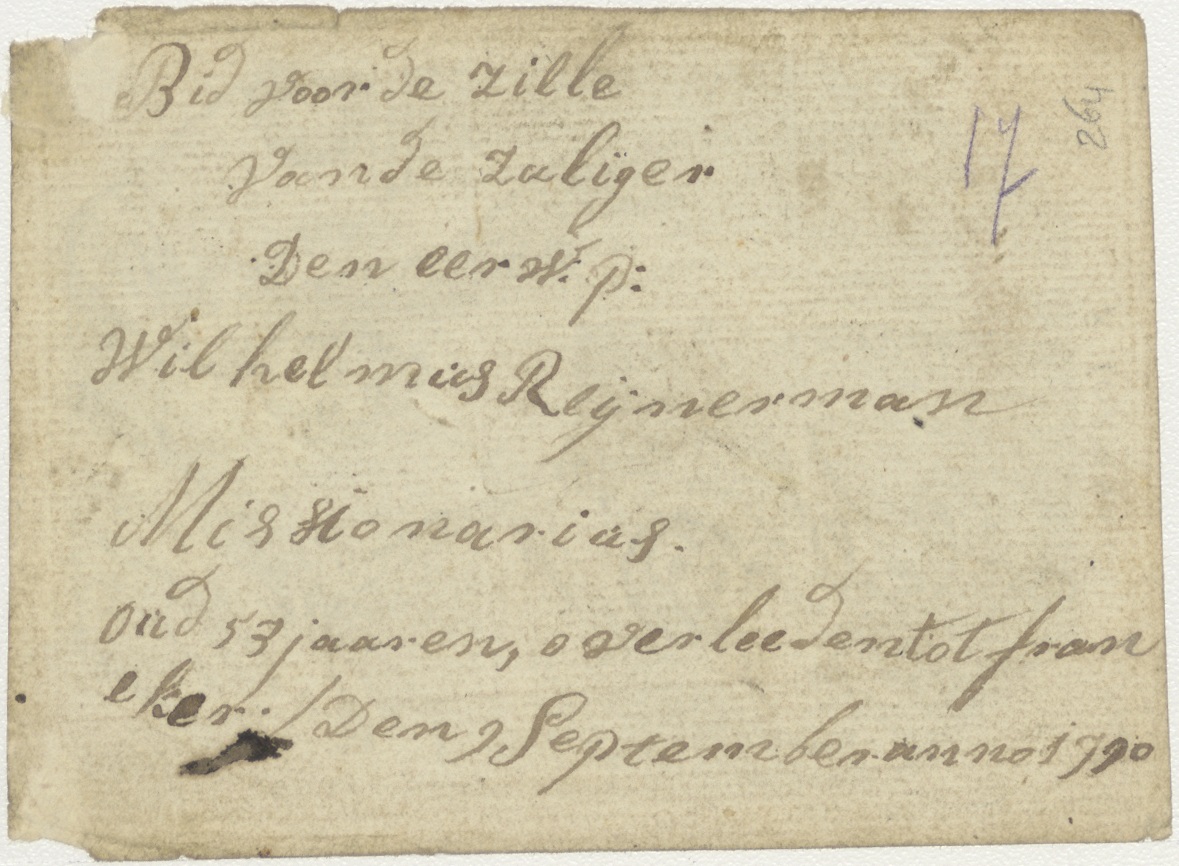 Bid voor de zille
van de zaliger
Den eerw. p:
Wilhelmus Reijnerman
Missionarius.
oud 53 jaaren, overleeden tot fran
eker. / Den 9 September anno 1790
17
264